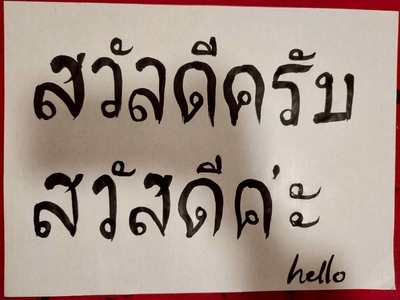 สวัสดีครับ
สวัสดีค่ะ
hello